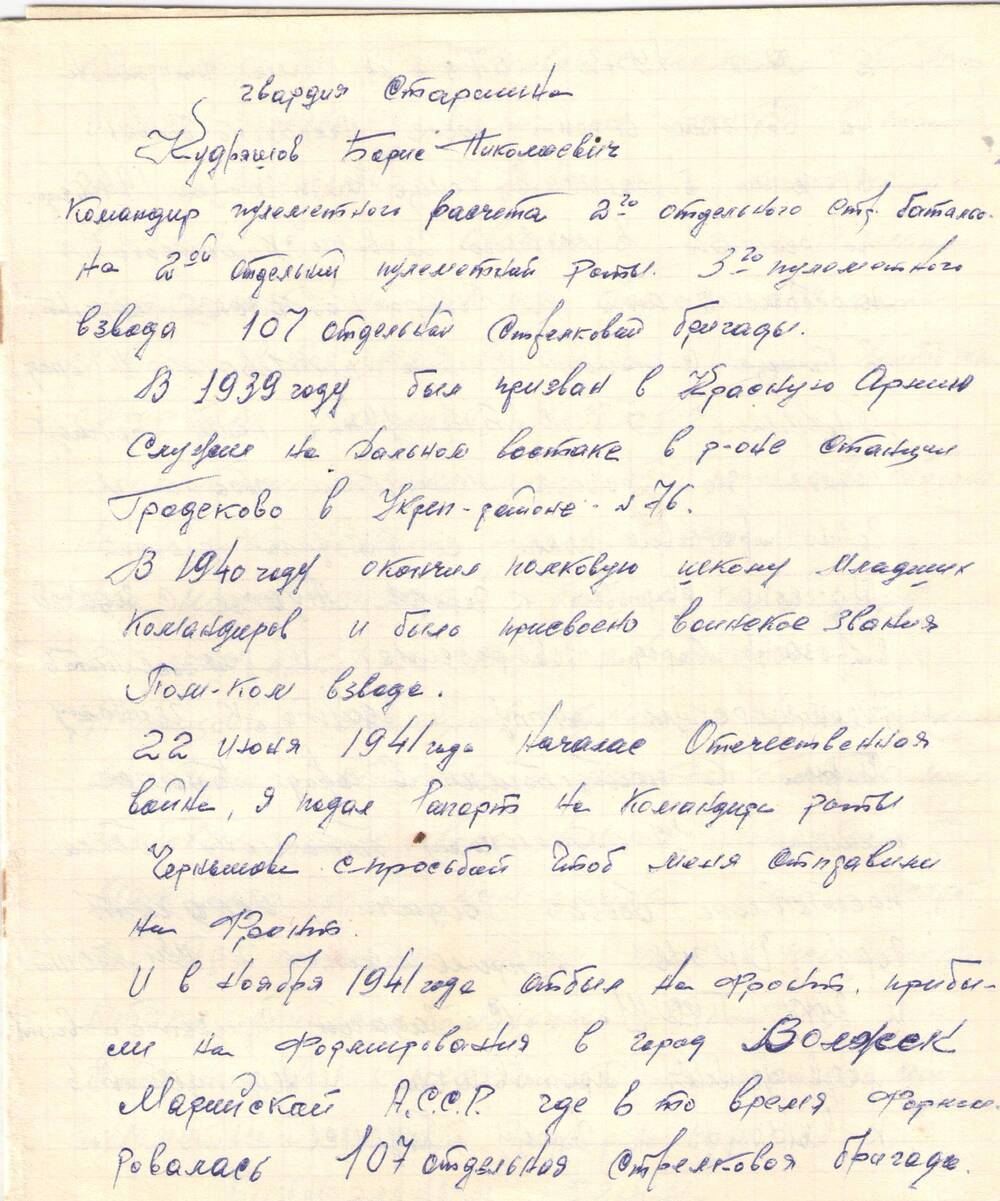 гвардия Старшина
Кудряшов Борис Николаевич
Командир пулеметного расчета 2го отдельного стр. баталио-
на 2ой отдельной пулеметной роты. 3го пулеметного
взвода 107 отдельной Стрелковой бригады.
В 1939 году был призван в Красную Армию
Служил на Дальном востаке в р-оне станции
Гродеково в Укреп-районе - № 76.
В 1940 году окончил полковую школу Младших
Командиров и было присвоено воинское звания
Пом-ком взвода.
22 июня 1941 года Началас Отечественная
война, я подал Рапорт на Командира роты
Чернышова с просьбай Чтоб меня отправили
на Фронт.
И в Ноября 1941 года отбыл на Фронт, прибы-
ли на Формирования в город Волжск
Марийской А.С.С.Р. где в то время Форми-
ровалась 107 отдельная Стрелковоя бригада.